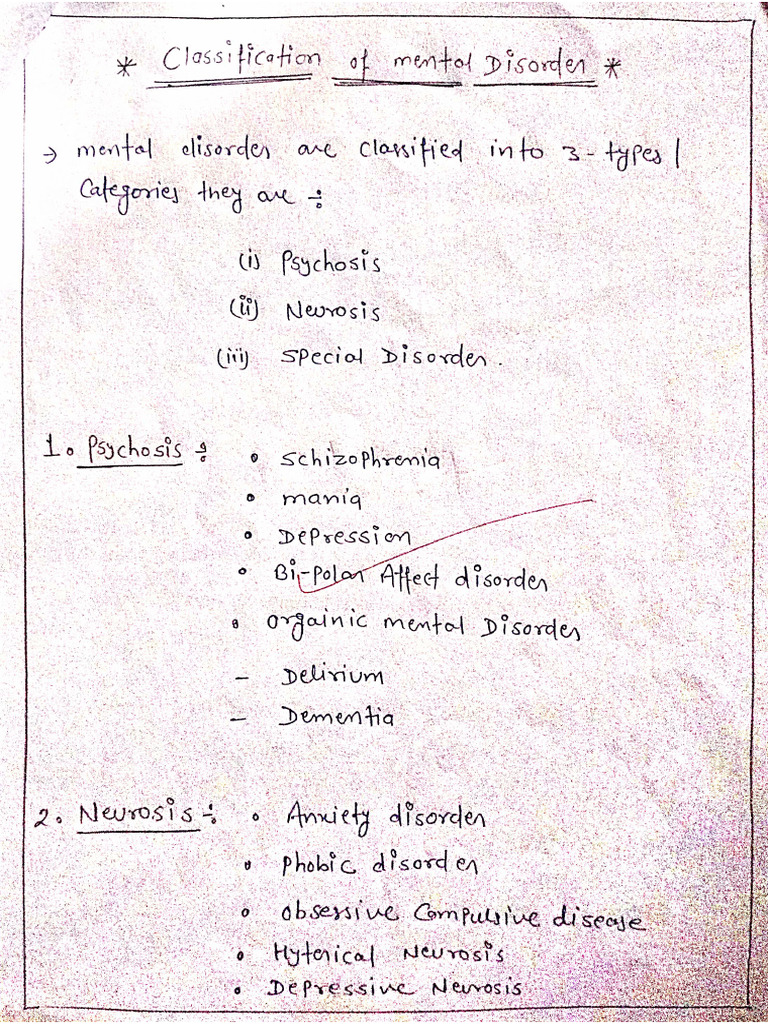 * Classification of mental Disorder *
→ mental disorder are classified into 3-types/
Categories they are ÷
(i) Psychosis
(ii) Neurosis
(iii) Special Disorder.
1. Psychosis ÷ • Schizophrenia
• mania
• Depression
• Bi-polar Affect disorder
• Orgainic mental Disorder
– Delirium
– Dementia
2. Neurosis ÷ • Anxiety disorder
• Phobic disorder
• Obsessive Compulsive disease
• Hyterical Neurosis
• Depressive Neurosis